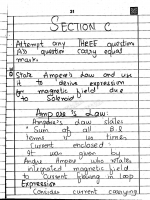 31
SECTION C
Attempt any THREE question
All question carry equal
mark.
State Ampere's Law and use
it to derive expression
for magnetic field due
to Solenoid
Ampere's Law:
Ampere's law states
"Sum of all B.l
is times
Current enclosed
It was given by
Andre Ampere who relates
integrated magnetic field
to current flowing in loop
Expression
Consider current carrying